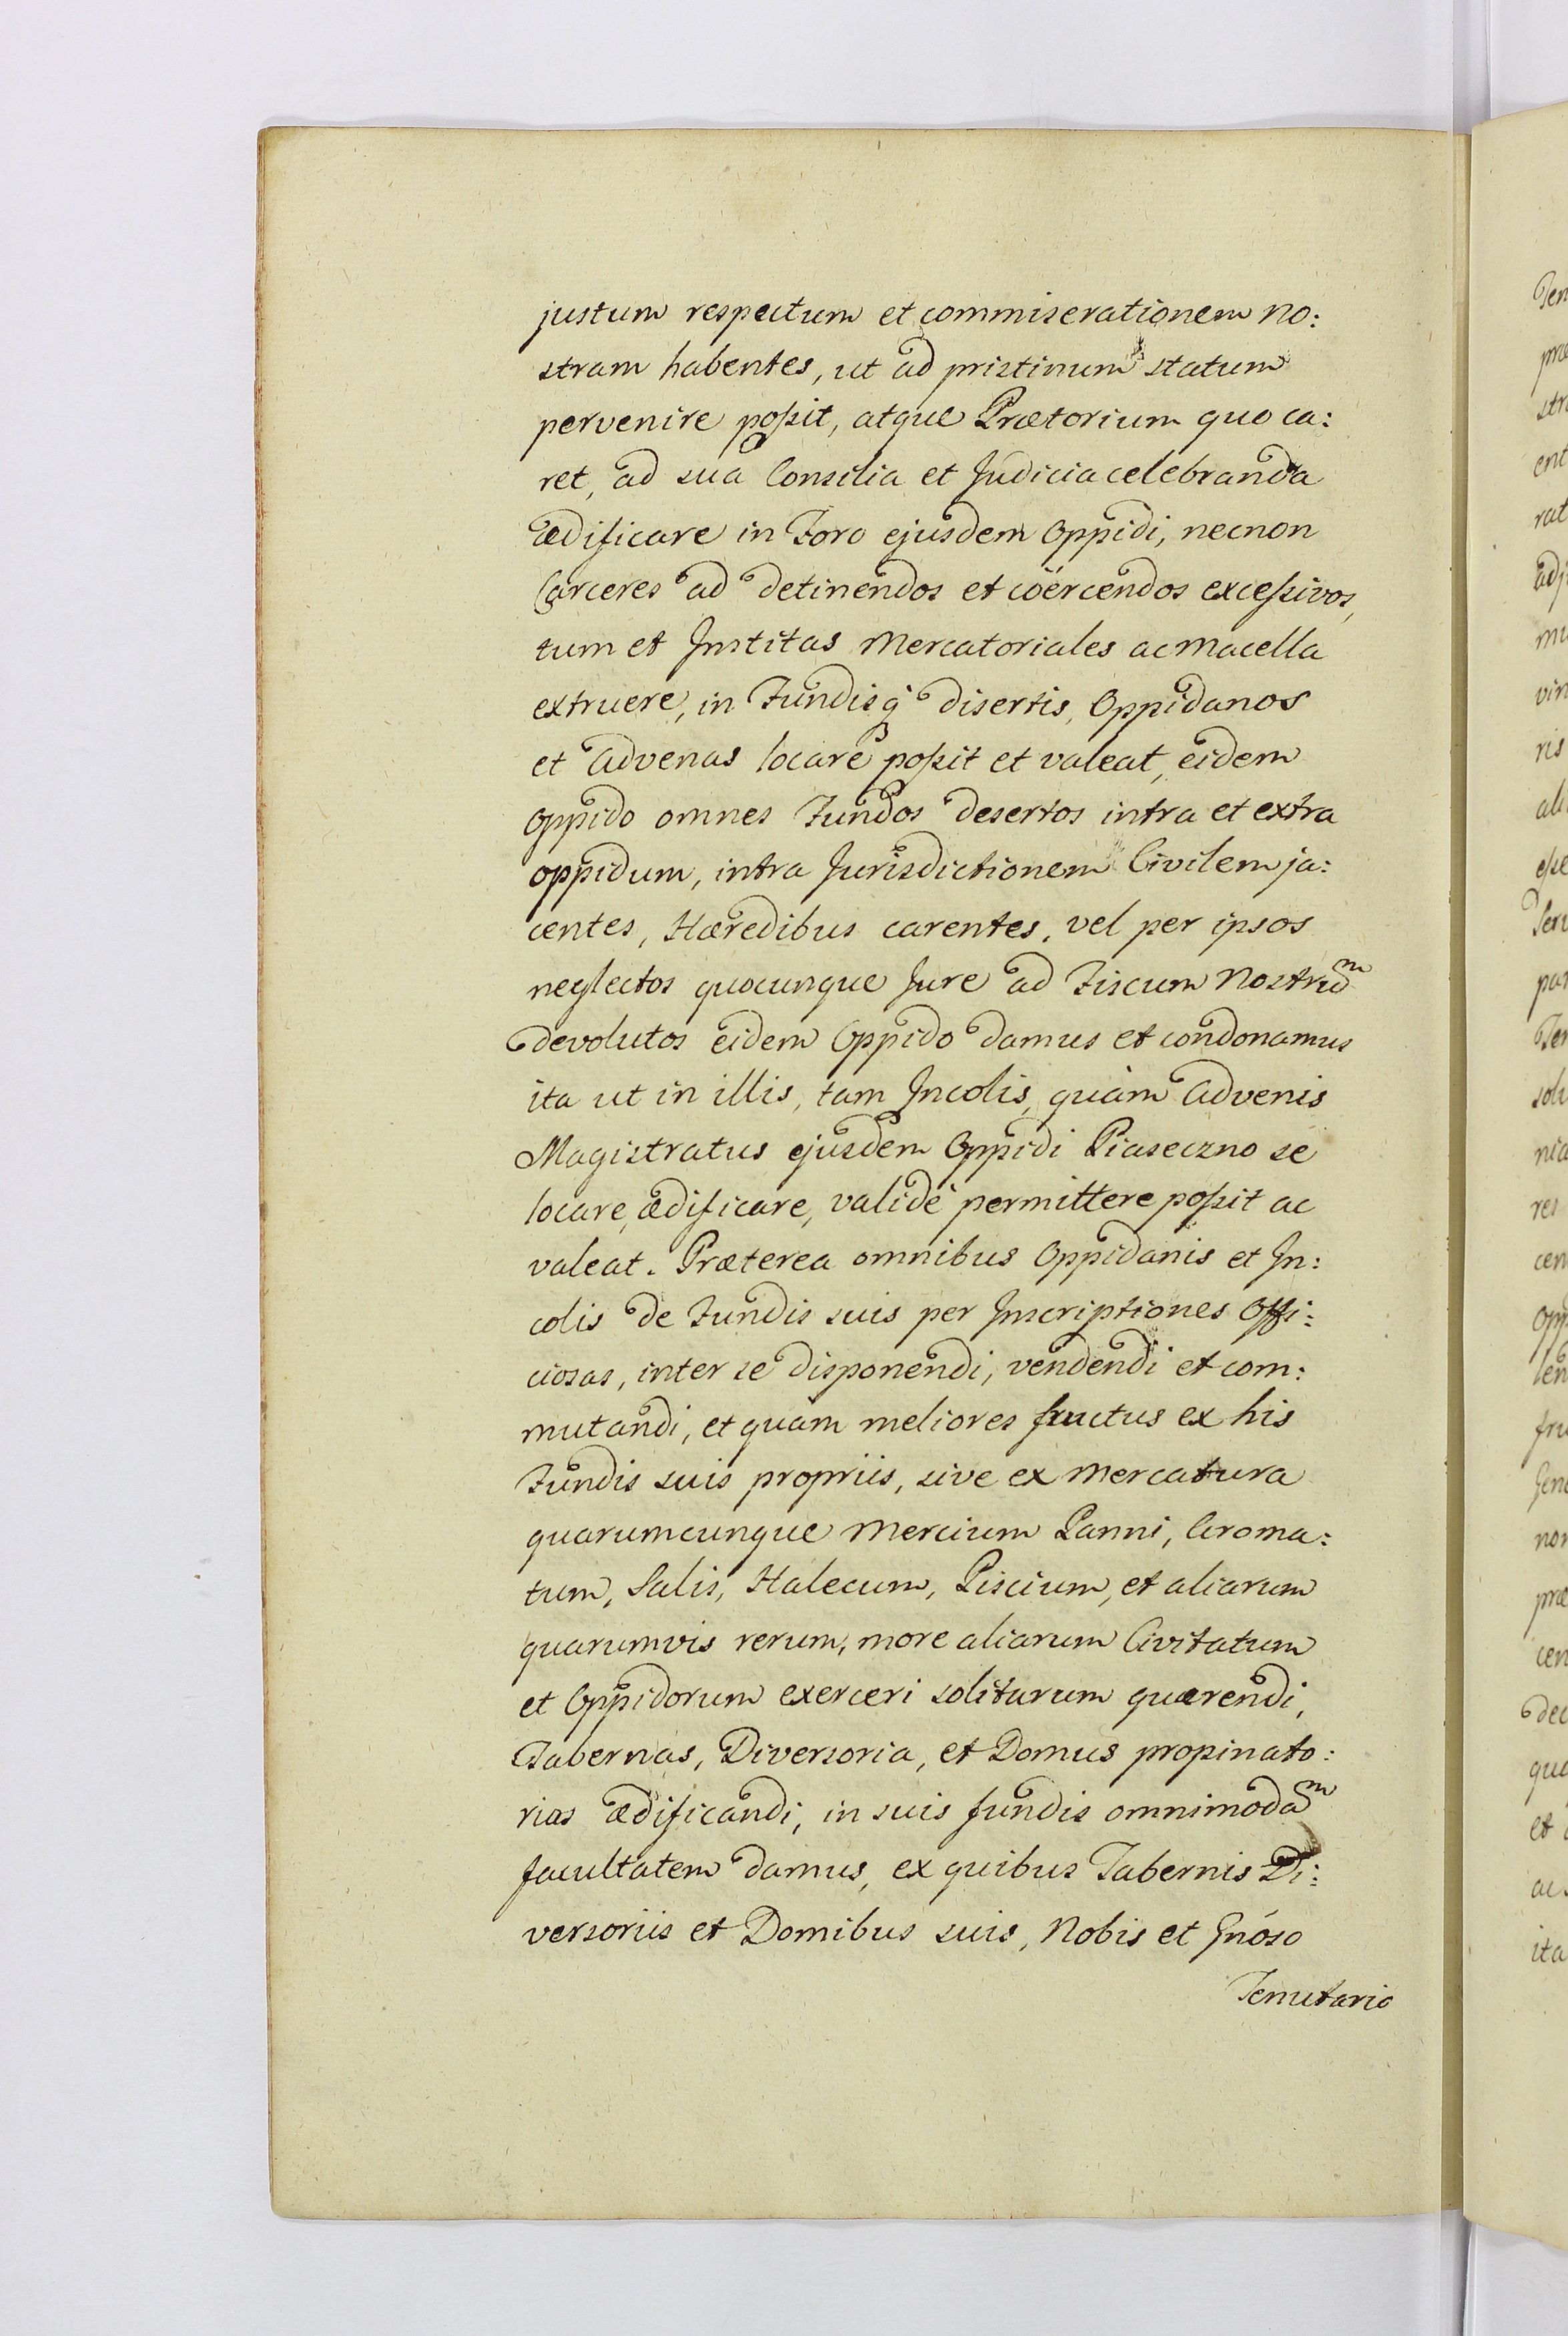 justum respectum et commiserationem no:
stram habentes, ut ad pristinum statum
pervenire poßit, atque Prætorium quo ca:
ret, ad sua Consilia et Judicia celebranda
ædificare in Foro ejusdem Oppidi, necnon
Carceres ad detinendos et coërcendos exceßivos,
tum et Institas Mercatoriales ac Macella
extruere, in Fundisq disertis, Oppidanos
et Advenas locare poßit et valeat, eidem
Oppido omnes Fundos desertos intra et extra
oppidum, intra Jurisdictionem Civilem ja:
centes, Hæredibus carentes, vel per ipsos
neglectos quocunque Jure ad Fiscum Nostrum
devolutos eidem Oppido damus et condonamus
ita ut in illis, tam Incolis, quàm Advenis
Magistratus ejusdem Oppidi Piaseczno se
locare, ædificare, validè permittere poßit ac
valeat. Præterea omnibus Oppidanis et In:
colis de Fundis suis per Inscriptiones Offi:
ciosas, inter se disponendi, vendendi et com:
mutandi, et quam meliores fructus ex his
Fundis suis propriis, sive ex Mercatura
quarumcunque Mercium Panni, Aroma:
tum, Salis, Halecum, Piscium, et aliarum
quarumvis rerum, more aliarum Civitatum
et Oppidorum exerceri solitarum quærendi,
Tabernas, Diversoria, et Domus propinato:
rias ædificandi, in suis fundis omnimodam
facultatem damus, ex quibus Tabernis Di:
versoriis et Domibus suis, Nobis et Gnóso
Tenutario